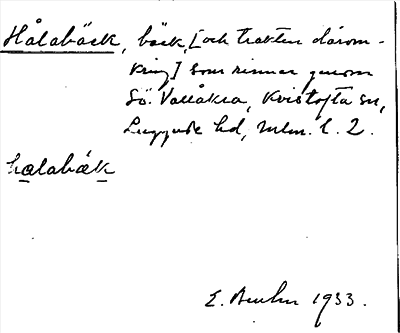 Hålabäck, bäck, [och trakten därom-
kring] som rinner genom
Sö. Vallåkra, Kvistofta sn,
Luggude hd, Mlm. l. 2.
halabäk
E. 1933.